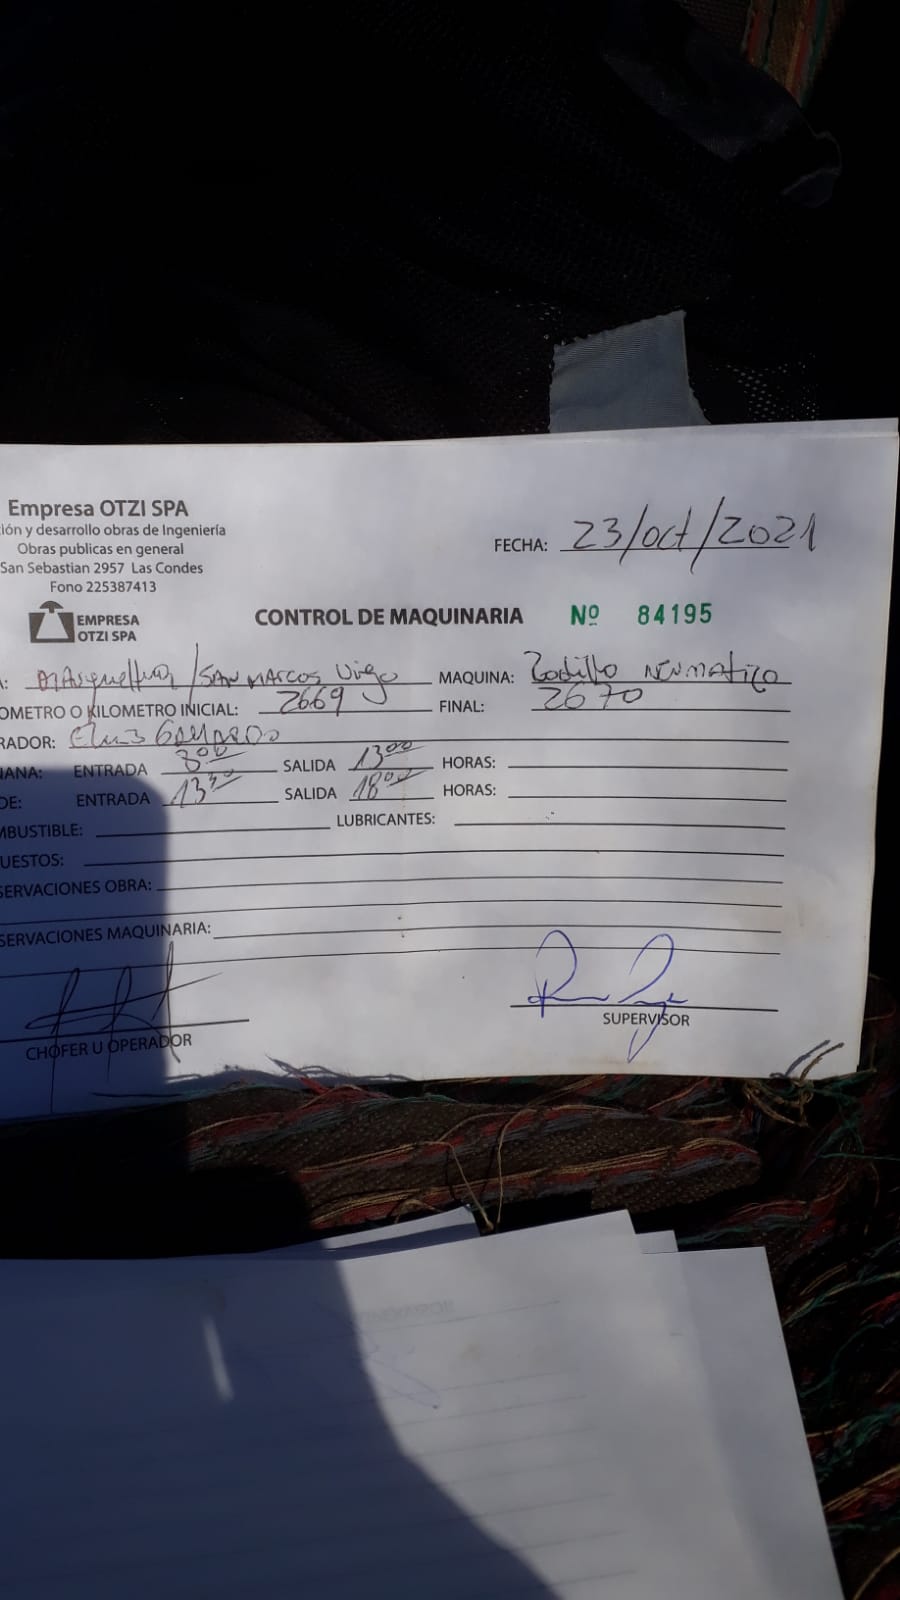 Empresa OTZI SPA
ión y desarrollo obras de Ingeniería
Obras publicas en general
San Sebastian 2957 Las Condes
Fono 225387413
FECHA: 23/oct/2021
EMPRESA
OTZI SPA
CONTROL DE MAQUINARIA Nº 84195
A: /SAN MARCOS Viejo MAQUINA: Rodillo NEUMATICO
OMETRO O KILOMETRO INICIAL: 2669 FINAL: 2670
RADOR: GALLARDO
ANA: ENTRADA 8:00 SALIDA 13:00 HORAS:
DE: ENTRADA 13:30 SALIDA 18:00 HORAS:
MBUSTIBLE: LUBRICANTES:
UESTOS:
SERVACIONES OBRA:
SERVACIONES MAQUINARIA:
CHOFER U OPERADOR
SUPERVISOR